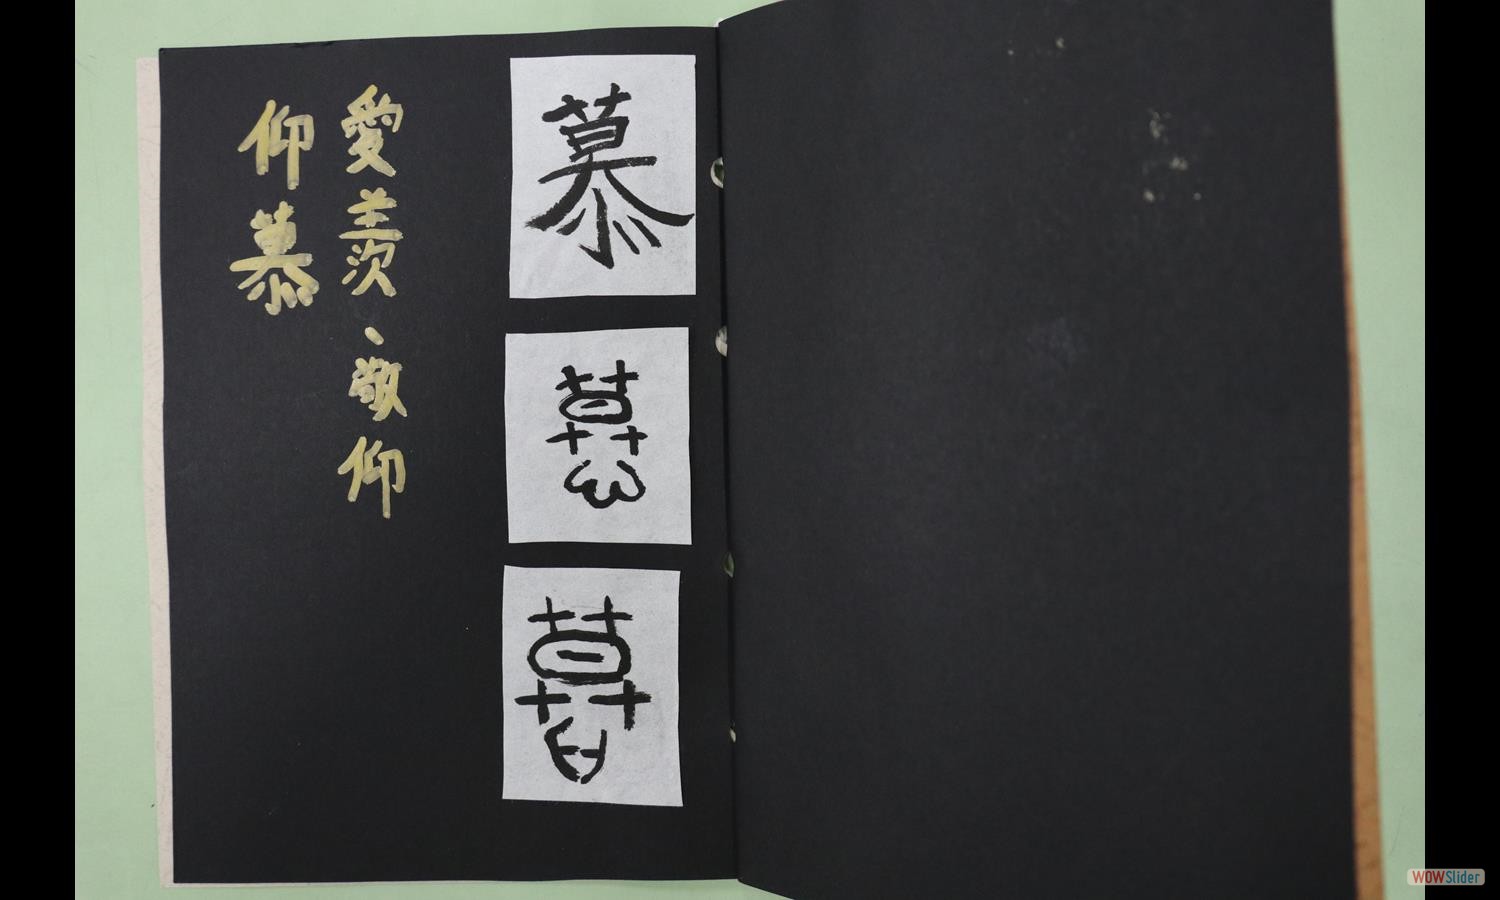 慕
慕
慕
愛羨、敬仰
仰慕
WOWSlider